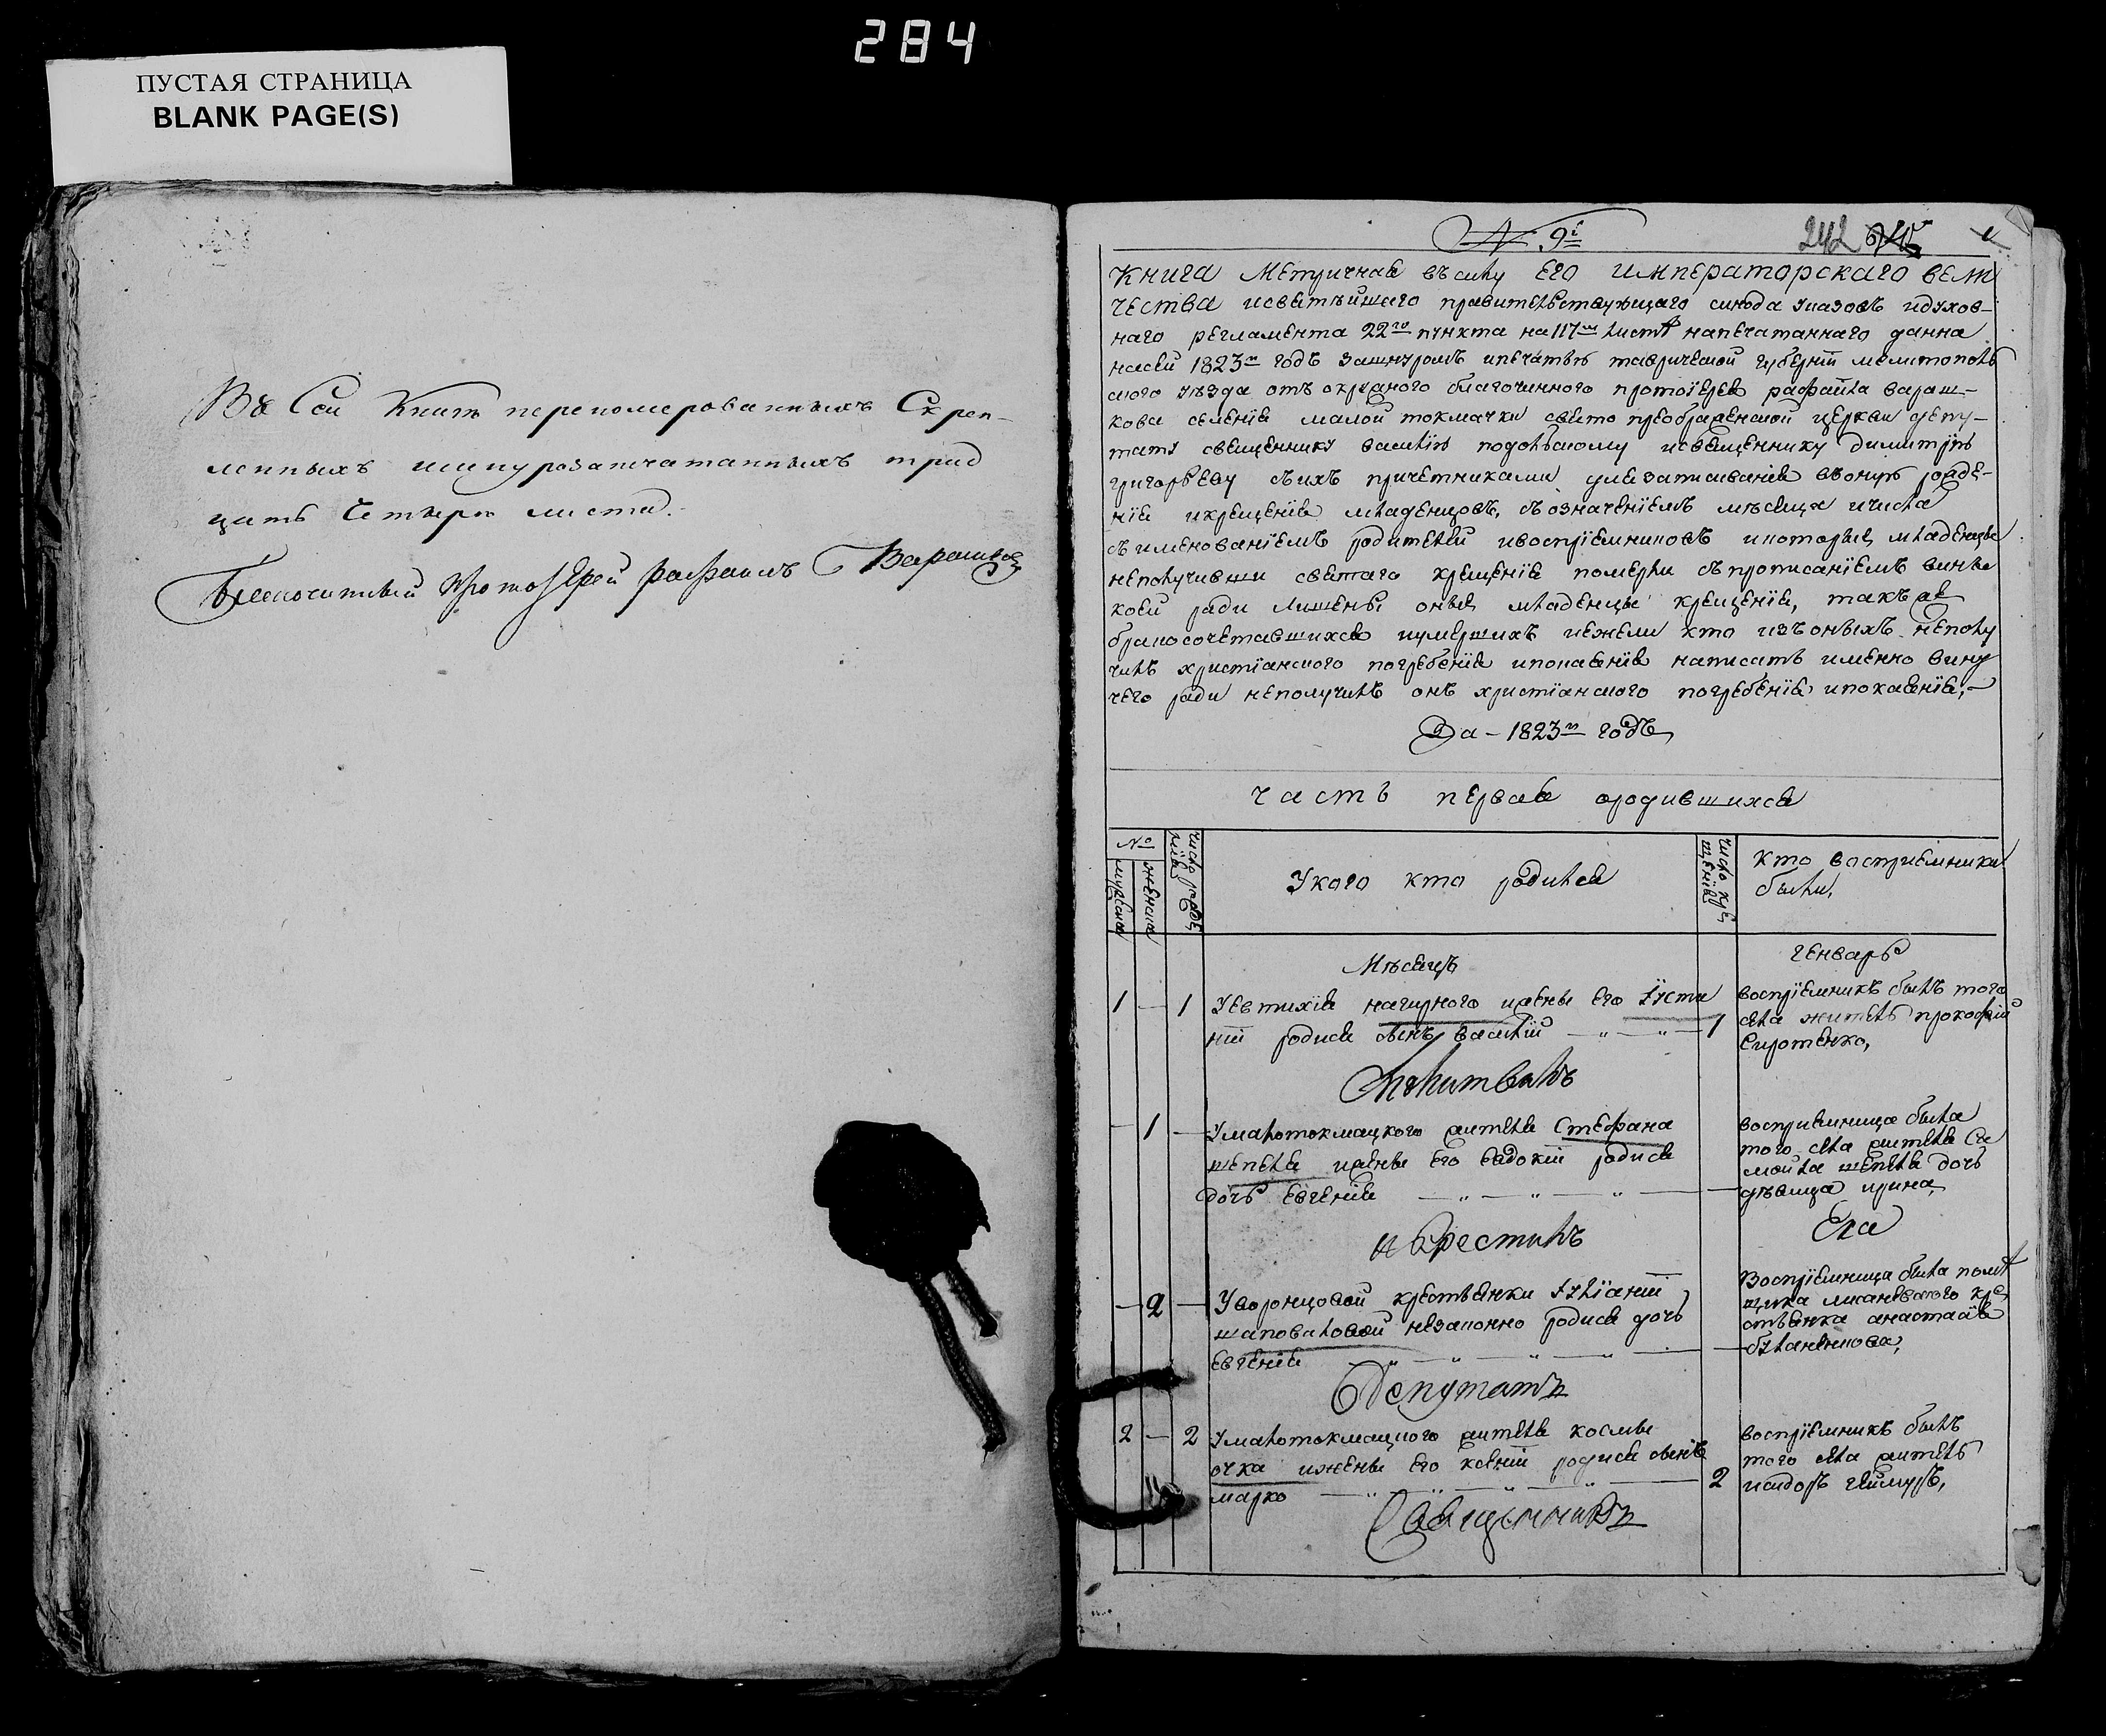 284
ПУСТАЯ СТРАНИЦА
BLANK PAGE(S)
Въ Сей Книги перенумерованныхъ Скреп-
ленныхъ шнурозапечатанныхъ трид
цать Четыре листа.
Благочинный Протоіерей Рафаилъ Варашков
№ 9й
242
Книга Метричная въ силу Его императорскаго вели
чества исвятѣйшаго правительствующаго синода указовъ идухов-
наго регламента 22го пункта на 117м листѣ напечатаннаго данна
насей 1823й годъ зашнуромъ ипечатью таврической губерніи мелитополь
ского уѣзда отъ окружного благочинного протоіерея рафаила вараш-
кова селенія малой токмачки свято преображенской церкви депу-
тату священнику василію подольскому исвященнику димитрію
григорьеву съихъ причетниками для записыванія воную рожде-
нія икрещенія младенцовъ, съозначеніемъ мѣсяца ичисла
съименованіемъ родителей ивоспріемниковъ икоторые младенцы
неполучивши святаго крещенія померли съпрописаніемъ вины
коей ради лишены оные младенцы крещенія, такъже
бракосочетавшихся иумершихъ иежели кто изъоныхъ неполу
чилъ христіанского погребенія ипокаянія написать именно вину
чего ради неполучилъ онъ христіанского погребенія ипокаянія,-
За - 1823й годъ
часть первая ородившихся
№
мужеска
женска
число рожде
нія
Укого кто родился
число кре
щенія
кто восприемники
были,
Мѣсяцъ
генварь
1 — 1 Уевтихія нагирного ижены его Іусти
ніи родися сынъ василій — „ — „ — 1
воспріемникъ былъ того
села житель прокофій
Сиротенко,
Молитвилъ
— 1 — Умалотокмацкого жителя Стефана
шепеля ижены его Евдокіи родися
дочь Евгенія — „ — „ — „ —
восприемница была
того села жителя Са
мойла шепеля дочь
дѣвица ирина,
и Крестилъ
Ея
— 2 — Уворонцовой крестьянки Іуліаніи
шаповаловой незаконно родися дочь
Евгенія — „ — „ — „ — „ —
Воспріемница была помѣ
щика лисаневского кре
стьянка анастасія
Депутатъ
2 — 2 Умалотокмацкого жителя космы
очка ижены его ксеніи родися сынъ
марко — „ — „ — „ — „ — 2
воспріемникъ былъ
того села житель
исидоръ геймуръ,
Священникъ